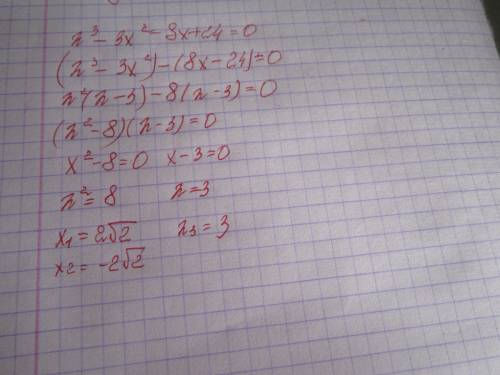 x³ - 3x² - 8x + 24 = 0
(x³ - 3x²) - (8x - 24) = 0
x²(x - 3) - 8(x - 3) = 0
(x² - 8)(x - 3) = 0
x² - 8 = 0 x - 3 = 0
x² = 8 x = 3
x₁ = 2√2 x₃ = 3
x₂ = -2√2